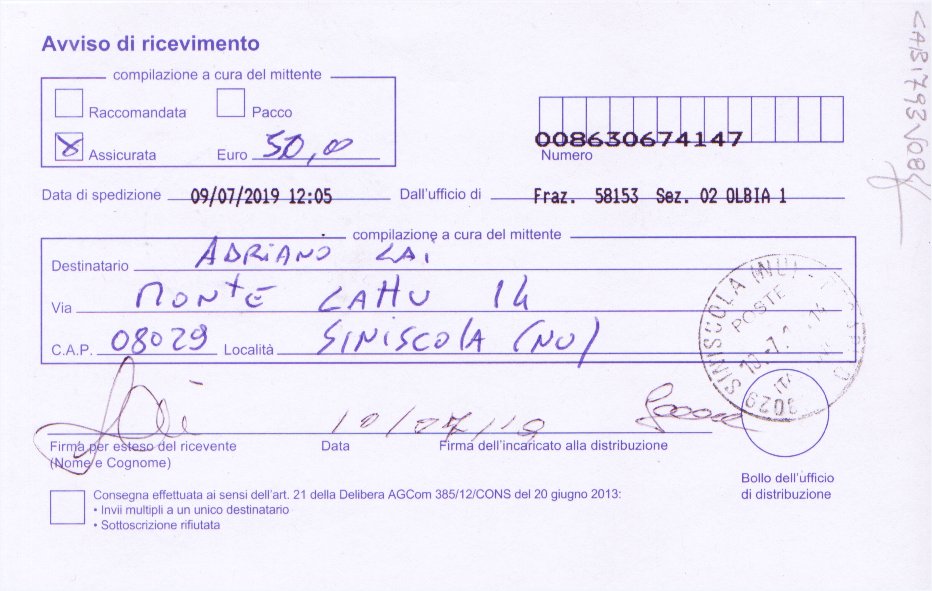 Avviso di ricevimento
compilazione a cura del mittente
Raccomandata Pacco
Assicurata Euro 50,00
008630674147
Numero
Data di spedizione 09/07/2019 12:05 Dall'ufficio di Fraz. 58153 Sez. 02 OLBIA 1
compilazione a cura del mittente
Destinatario ADRIANO LAI
Via MONTE LATTU 14
C.A.P. 08029 Località SINISCOLA (NU)
SINISCOLA (NU)
POSTE
10/07/19
Firma per esteso del ricevente Data Firma dell'incaricato alla distribuzione
(Nome e Cognome)
Bollo dell'ufficio
di distribuzione
Consegna effettuata ai sensi dell'art. 21 della Delibera AGCom 385/12/CONS del 20 giugno 2013:
• Invii multipli a un unico destinatario
• Sottoscrizione rifiutata